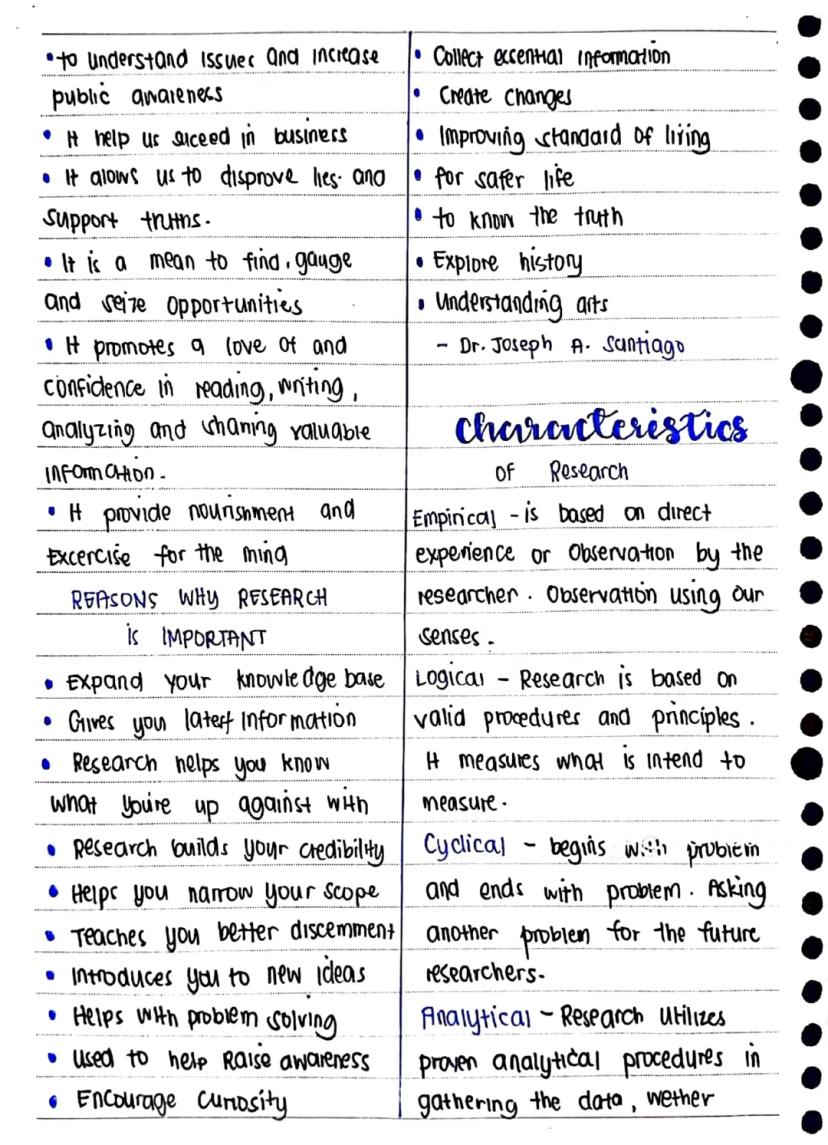 • to understand issues and increase
public awareness
• It help us suceed in business
• It alows us to disprove lies and
support truths.
• It is a mean to find, gauge
and seize opportunities
• It promotes a love of and
confidence in reading, writing,
analyzing and sharing valuable
information.
• It provide nourishment and
Excercise for the mind
REASONS WHY RESEARCH
is IMPORTANT
• Expand your knowledge base
• Gives you latest information
• Research helps you know
what you're up against with
• Research builds your credibility
• Helps you narrow your scope
• Teaches you better discernment
• Introduces you to new ideas
• Helps with problem solving
• Used to help Raise awareness
• Encourage curiosity
• Collect essential information
• Create changes
• Improving standard of living
• for safer life
• to know the truth
• Explore history
• Understanding arts
- Dr. Joseph A. Santiago
Characteristics
of Research
Empirical - is based on direct
experience or Observation by the
researcher. Observation using our
senses.
Logical - Research is based on
valid procedures and principles.
It measures what is intend to
measure.
Cyclical - begins with problem
and ends with problem. Asking
another problem for the future
researchers.
Analytical - Research utilizes
proven analytical procedures in
gathering the data, wether